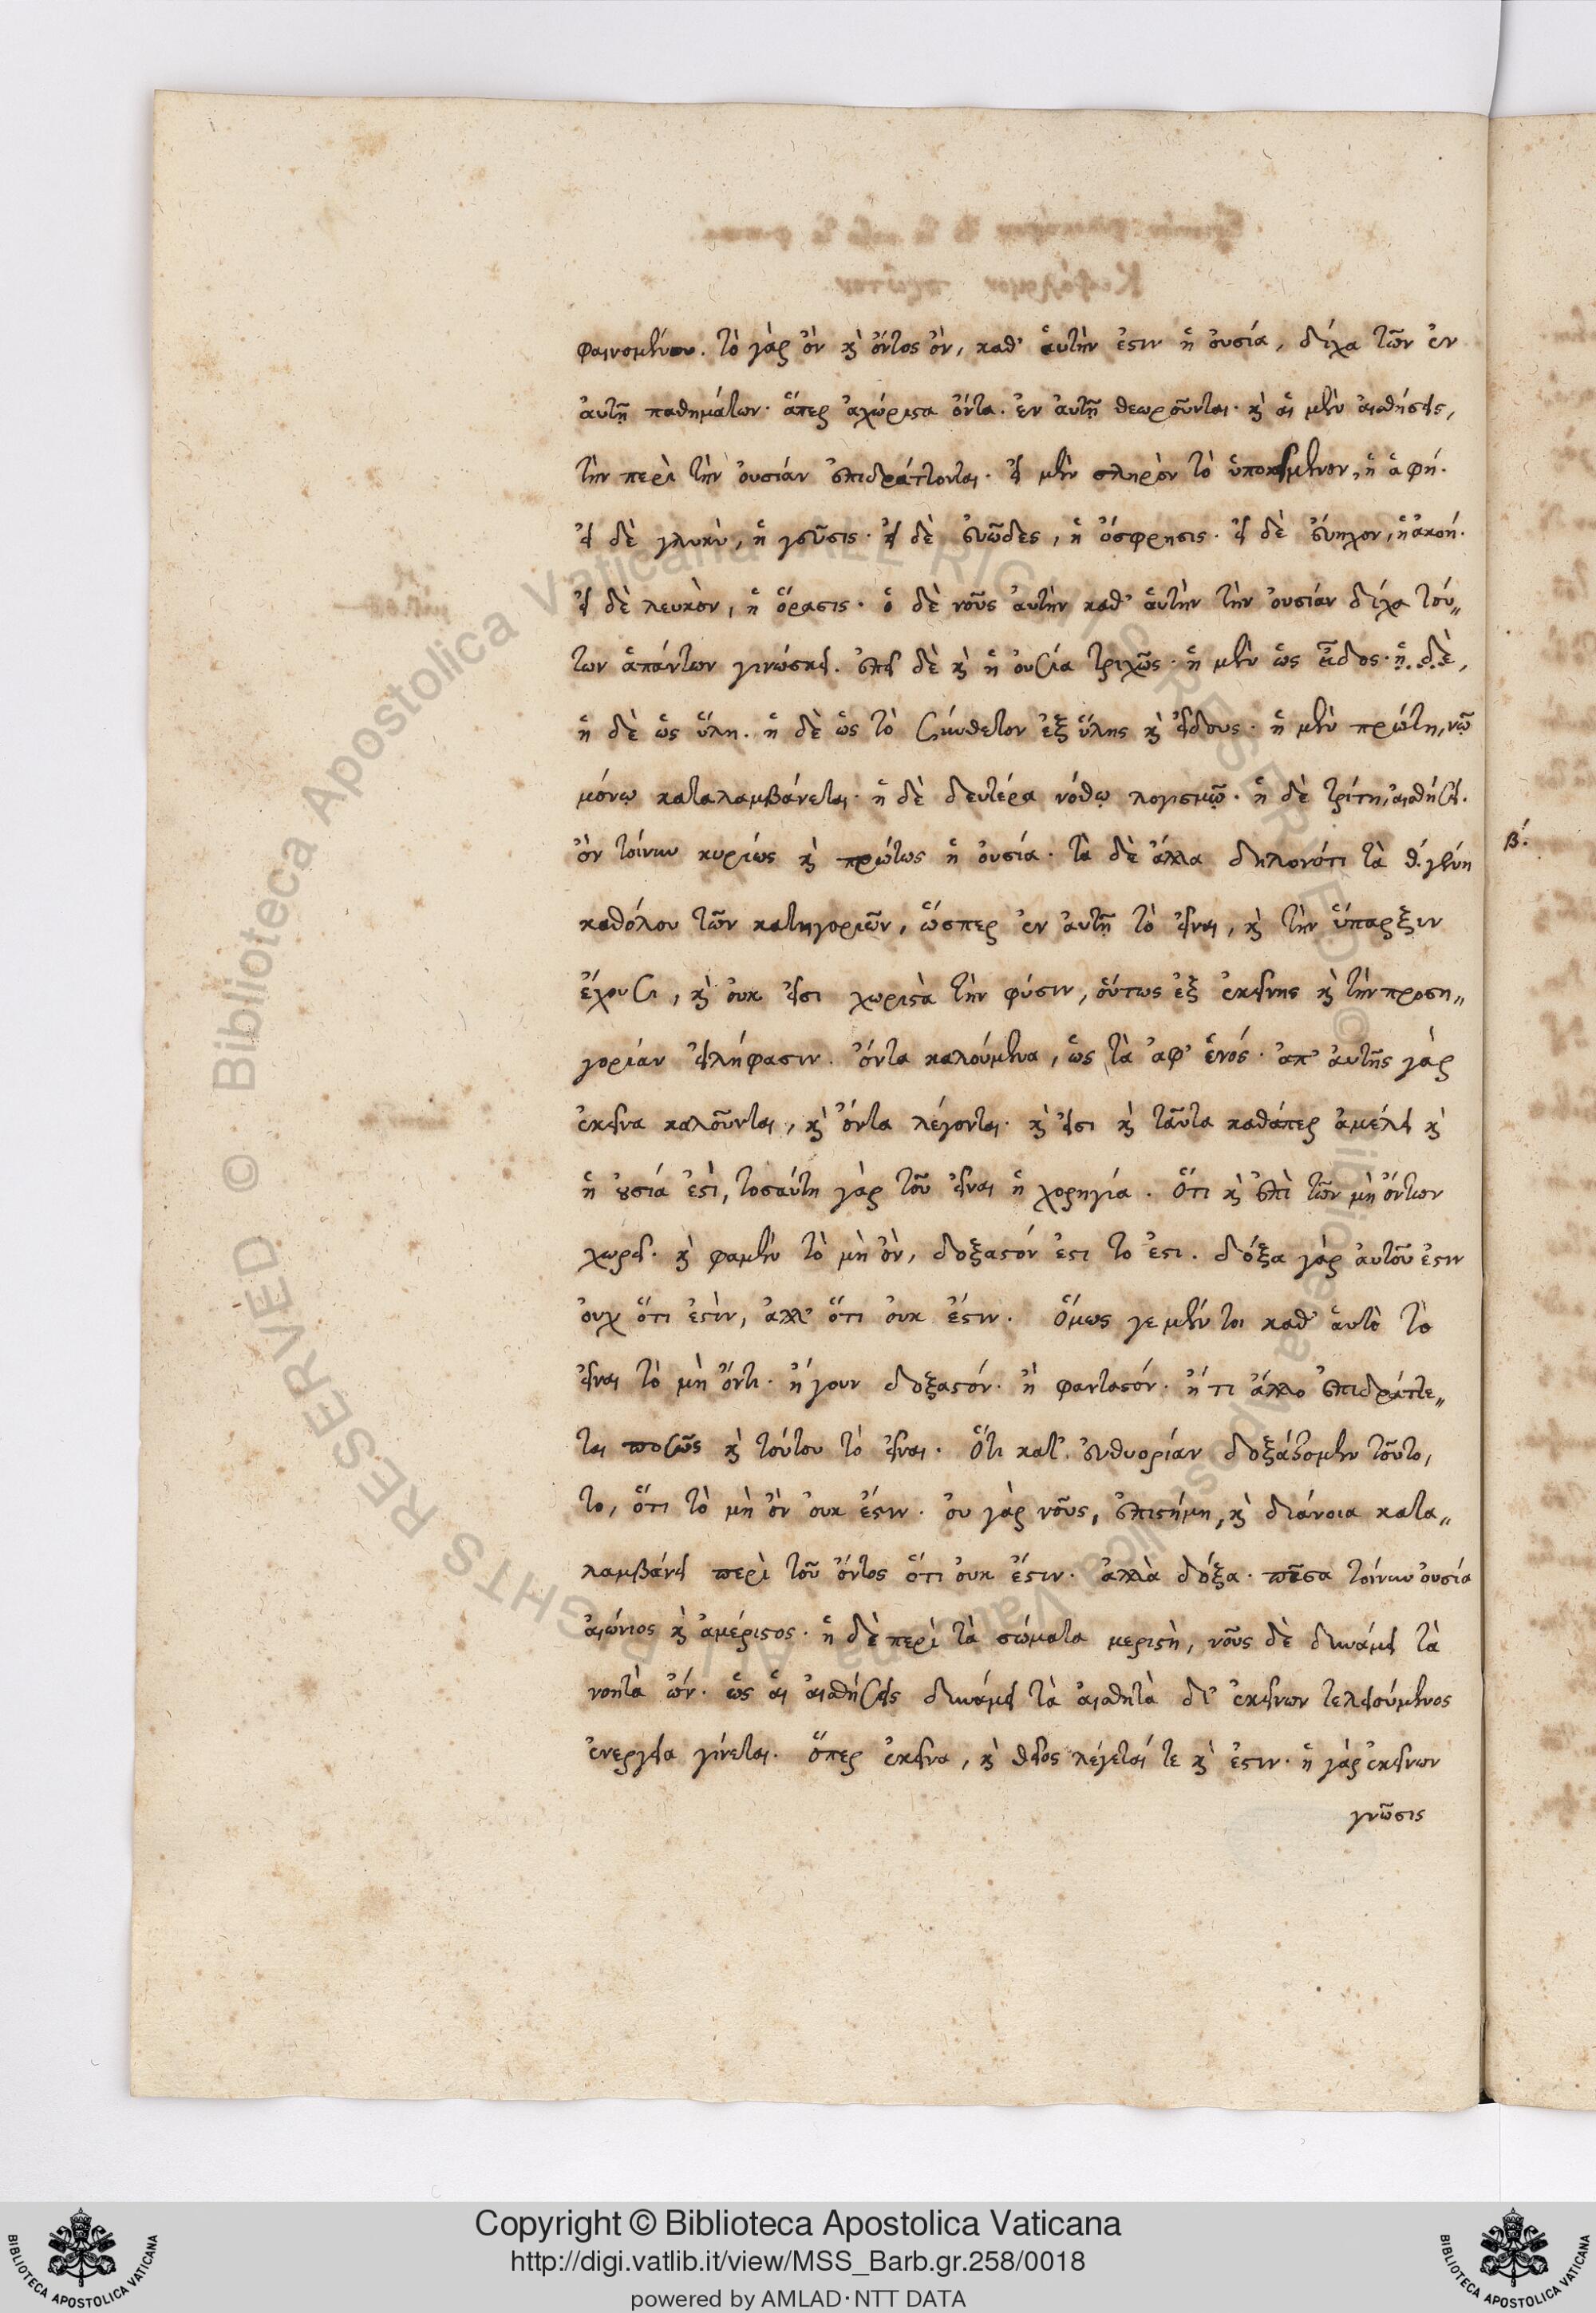 φαινομένου. τὸ γὰρ ὂν κὶ ὄντος ὂν, καθ' ἁυτὴν ἐστιν ἡ ὀυσία, δίχα τῶν ἐν
ἀυτῇ παθημάτων. ἅπερ ἀχώριστα ὄντα. ἐν ἀυτῇ θεωροῦνται. κὶ ἁι μὲν ἀισθήσεις,
τὴν περὶ τὴν ὀυσίαν ἐπιδράττονται. ἐι μὲν σκληρὸν τὸ ὑποκείμενον, ἡ ἁφή.
ἐι δὲ γλυκὺ, ἡ γεῦσις. ἐι δὲ ἐυῶδες, ἡ ὄσφρησις. ἐι δὲ ἔυηχον, ἡ ἀκοή.
ἐι δὲ λευκὸν, ἡ ὅρασις. ὁ δὲ νοῦς ἀυτὴν καθ' ἁυτὴν τὴν ὀυσίαν δίχα τού„
των ἁπάντων γινώσκει. ἐπεὶ δὲ κὶ ἡ ὀυσία τριχῶς. ἡ μὲν ὡς εἶδος. ἡ δὲ,
ἡ δὲ ὡς ὕλη. ἡ δὲ ὡς τὸ σύνθετον ἐξ ὕλης κὶ ἔιδους. ἡ μὲν πρώτη, νῷ
μόνῳ καταλαμβάνεται. ἡ δὲ δευτέρα νόθῳ λογισμῷ. ἡ δὲ τρίτη, ἀισθήσει.
ὂν τοίνυν κυρίως κὶ πρώτως ἡ ὀυσία. τὰ δὲ ἄλλα δηλονότι τὰ θ. γένη
καθόλου τῶν κατηγοριῶν, ὥσπερ ἐν ἀυτῇ τὸ ἐιναι, κὶ τὴν ὕπαρξιν
ἔχουσι, κὶ ὀυκ ἐισι χωριστὰ τὴν φύσιν, ὅυτως ἐξ ἐκείνης κὶ τὴν προση„
γορίαν ἐιλήφασιν. ὄντα καλούμενα, ὡς τὰ ἀφ' ἑνός. ἀπ' ἀυτῆς γὰρ
ἐκεινα καλοῦνται, κὶ ὄντα λέγονται. κὶ ἐισι κὶ ταῦτα καθάπερ ἀμέλει κὶ
ἡ ȣσία ἐστὶ, τοσαύτη γὰρ τοῦ ἐιναι ἡ χορηγία. Ὅτι κὶ ἐπὶ τῶν μὴ ὄντων
χωρεῖ. κὶ φαμὲν τὸ μὴ ὂν, δοξαστόν ἐστι το ἐστι. δόξα γὰρ ἀυτοῦ ἐστιν
ὀυχ ὅτι ἐστὶν, ἀλλ' ὅτι ὀυκ ἔστιν. Ὅμως γε μέν τοι καθ' ἁυτὸ τὸ
ἐιναι τὸ μὴ ὄντι. ἤγουν δοξαστόν. ἢ φανταστόν. ἤ τι ἄλλο ἐπιδράττε„
ται ποσῶς κὶ τούτου τὸ ἐιναι. Ὅτι κατ' ἐυθυορίαν δοξάζομεν τοῦτο,
το, ὅτι τὸ μὴ ὂν ὀυκ ἔστιν. ὀυ γὰρ νοῦς, ἐπιστήμη, κὶ διάνοια κατα„
λαμβάνει περὶ τοῦ ὄντος ὅτι ὀυκ ἔστιν. ἀλλὰ δόξα. πᾶσα τοίνυν ὀυσία
ἀιώνιος κὶ ἀμέριστος. ἡ δὲ περὶ τὰ σώματα μεριστὴ, νοῦς δὲ δυνάμει τὰ
νοητὰ ὤν. ὡς ἁι ἀισθήσεις δυνάμει τὰ ἀισθητὰ δι' ἐκείνων τελειούμενος
ἐνεργεία γίνεται. ὅπερ ἐκεινα, κὶ θεῖος λέγεταί τε κὶ ἐστιν. ἡ γὰρ ἐκείνων
γνῶσις
β.
Copyright © Biblioteca Apostolica Vaticana
http://digi.vatlib.it/view/MSS_Barb.gr.258/0018
powered by AMLAD·NTT DATA